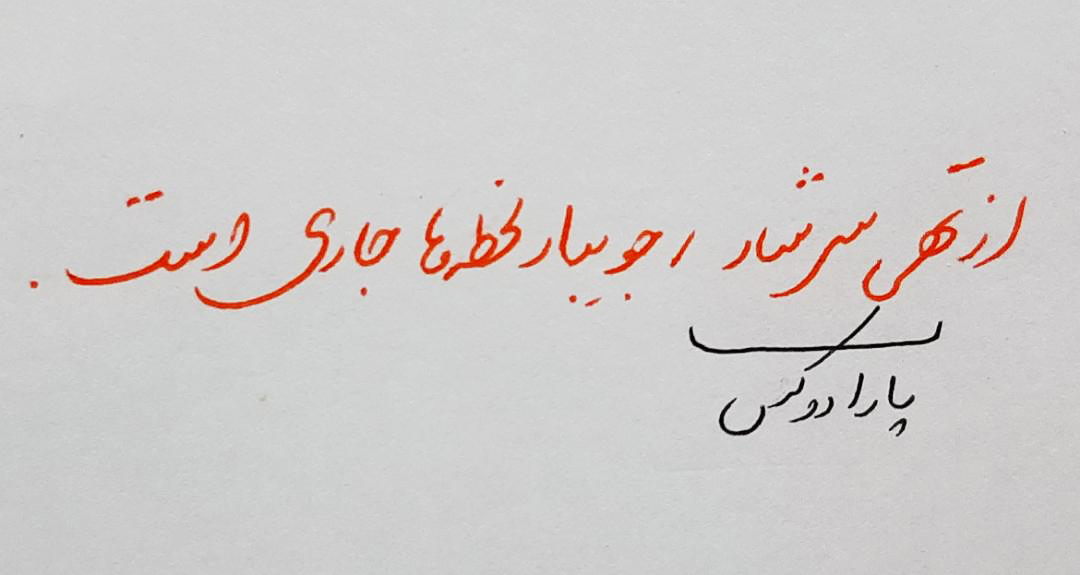 از تهی سرشار، جویبار لحظه‌ها جاری است.
پارادوکس